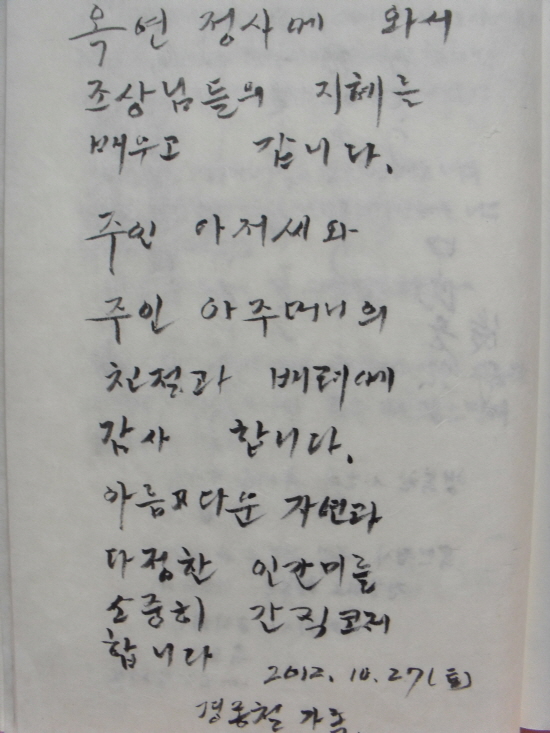 옥연 정사에 와서
조상님들의 지혜를
배우고 갑니다.
주인 아저씨와
주인 아주머니의
친절과 배려에
감사 합니다.
아름다운 자연과
다정한 인간미를
소중히 간직코저
합니다
2012. 10. 27(토)
가족